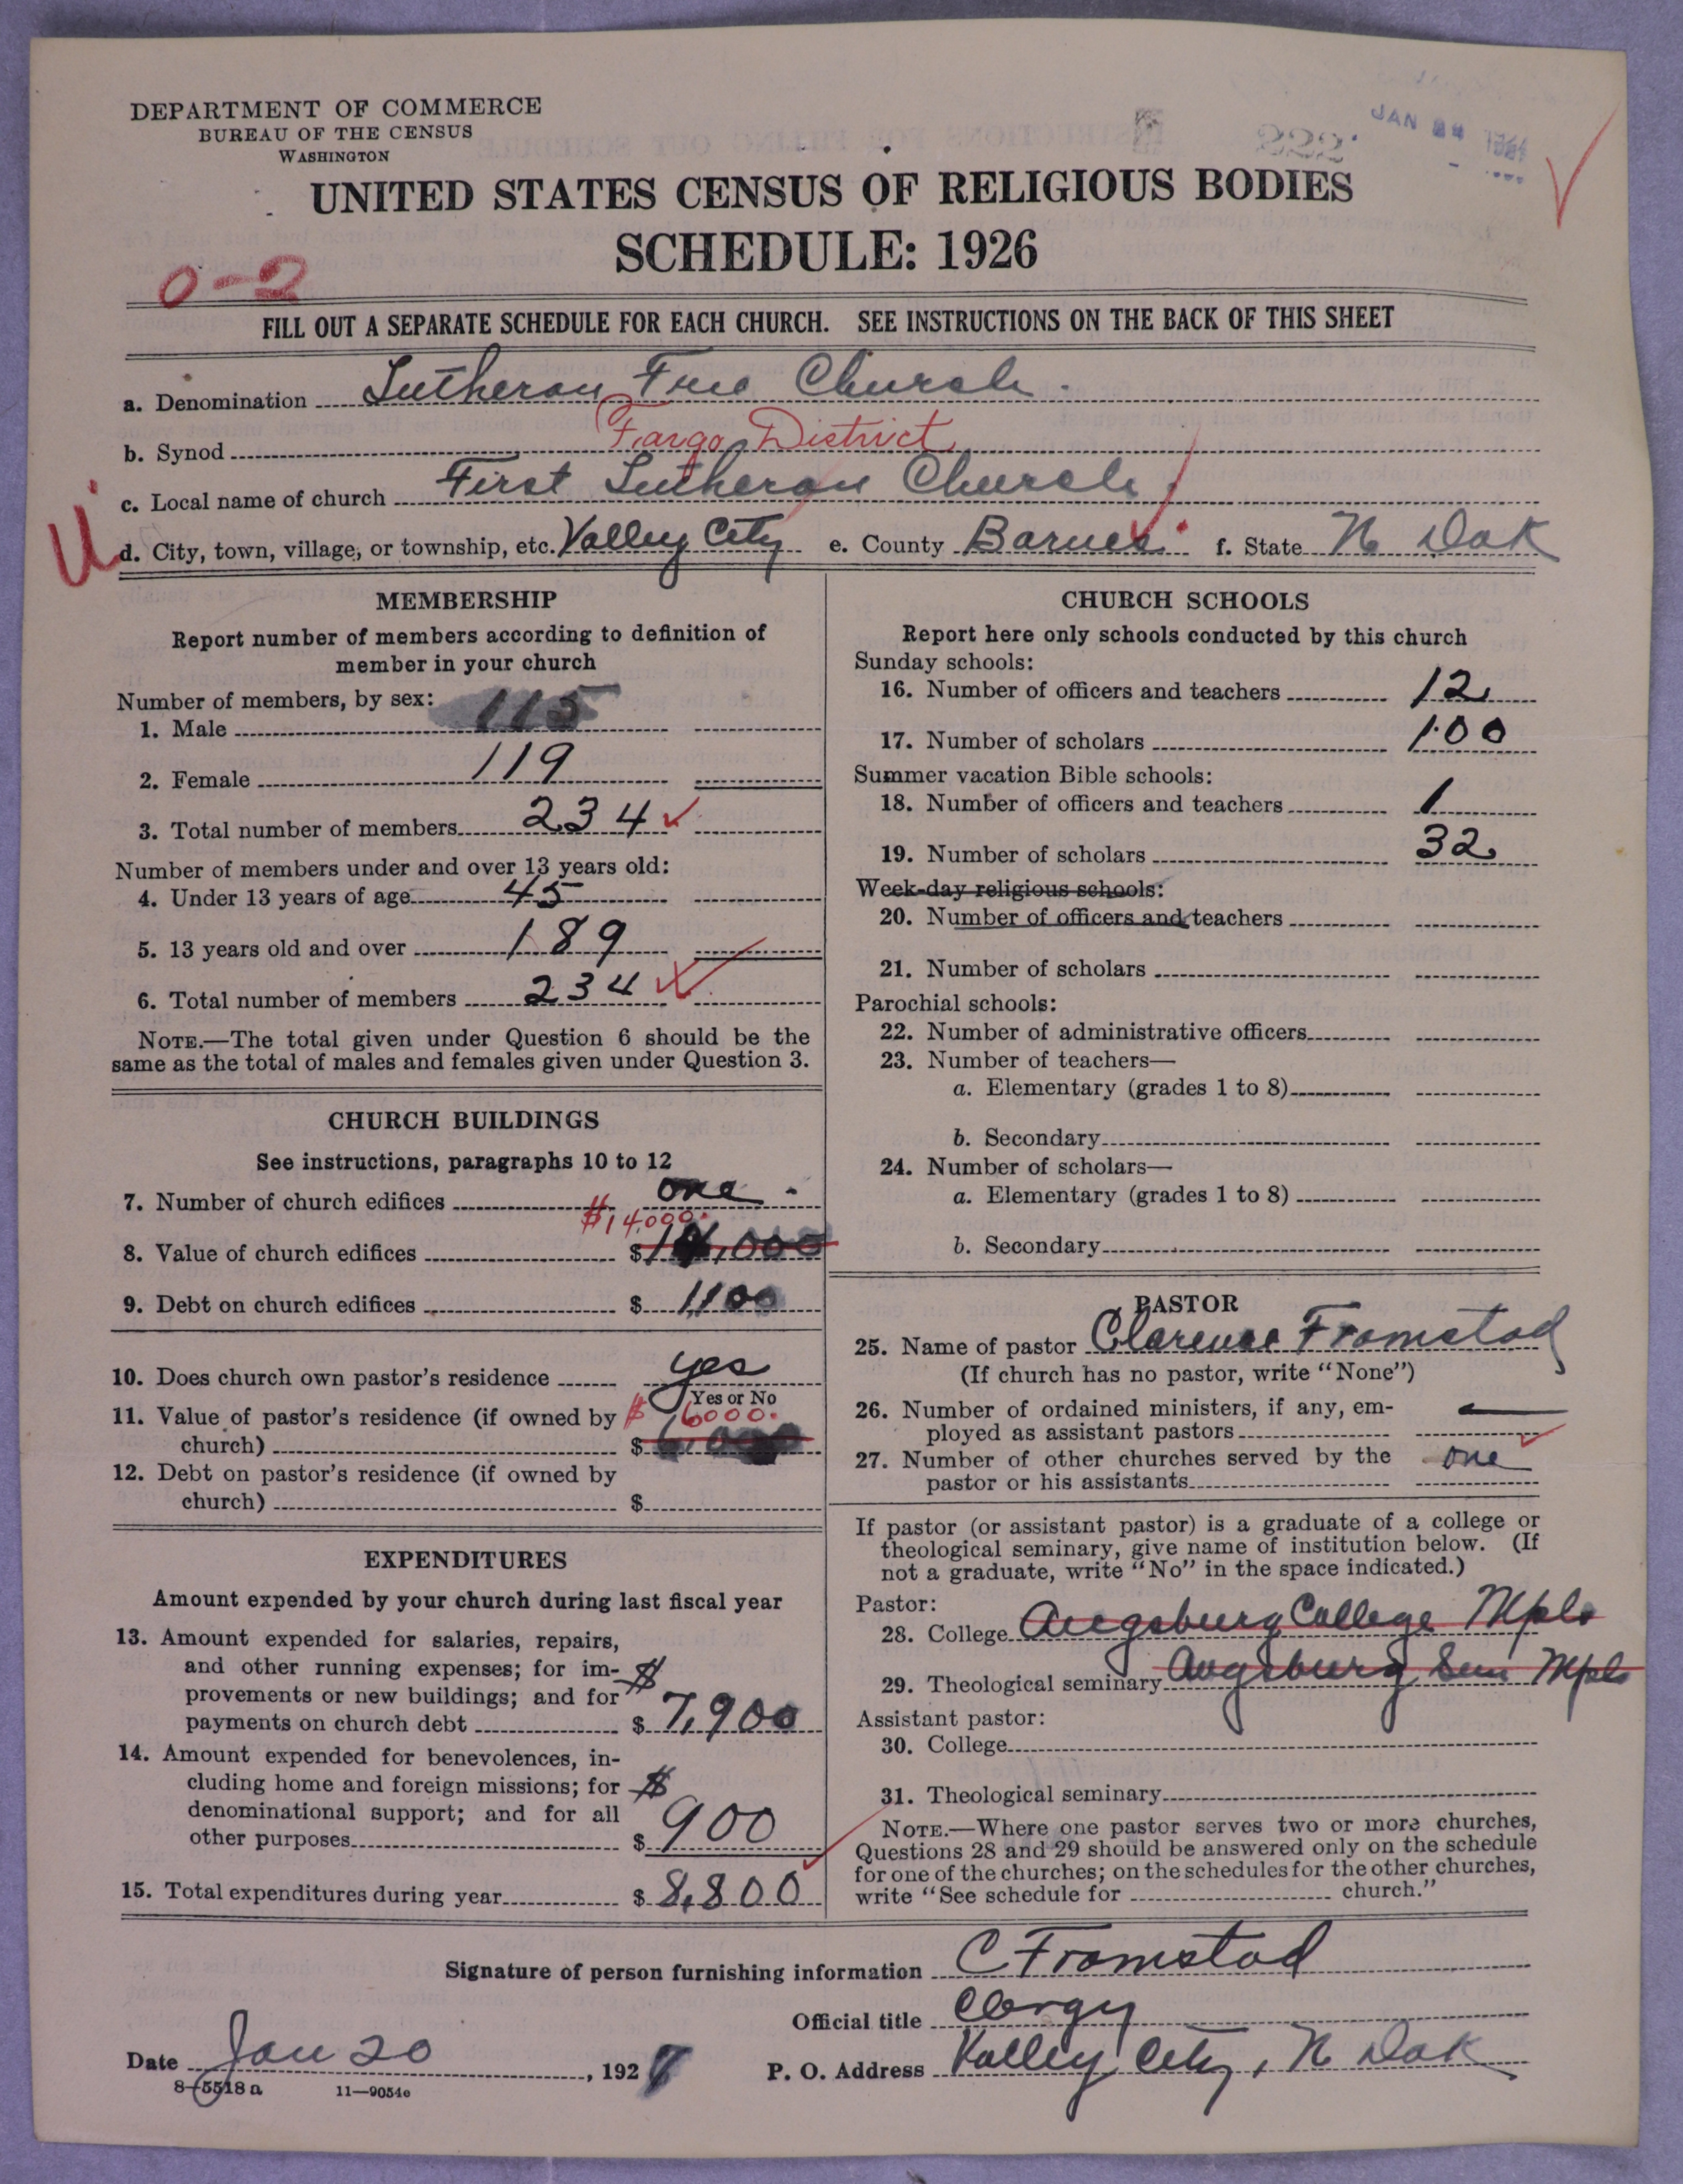 DEPARTMENT OF COMMERCE
BUREAU OF THE CENSUS
WASHINGTON
222
JAN
UNITED STATES CENSUS OF RELIGIOUS BODIES
SCHEDULE: 1926
0-2
FILL OUT A SEPARATE SCHEDULE FOR EACH CHURCH. SEE INSTRUCTIONS ON THE BACK OF THIS SHEET
a. Denomination Lutheran Free Church.
b. Synod Fargo District
c. Local name of church First Lutheran Church.
U d. City, town, village, or township, etc. Valley City e. County Barnes f. State N Dak
MEMBERSHIP
Report number of members according to definition of
member in your church
Number of members, by sex:
1. Male 115
2. Female 119
3. Total number of members 234
Number of members under and over 13 years old:
4. Under 13 years of age 45
5. 13 years old and over 189
6. Total number of members 234
NOTE.—The total given under Question 6 should be the
same as the total of males and females given under Question 3.
CHURCH BUILDINGS
See instructions, paragraphs 10 to 12
7. Number of church edifices one
$14,000.
8. Value of church edifices $
9. Debt on church edifices $ 1,100
10. Does church own pastor's residence yes
Yes or No
11. Value of pastor's residence (if owned by $ 6000.
church) $
12. Debt on pastor's residence (if owned by
church) $
EXPENDITURES
Amount expended by your church during last fiscal year
13. Amount expended for salaries, repairs,
and other running expenses; for im- $
provements or new buildings; and for
payments on church debt $ 7,900
14. Amount expended for benevolences, in-
cluding home and foreign missions; for $
denominational support; and for all
other purposes $ 900
15. Total expenditures during year $ 8,800
CHURCH SCHOOLS
Report here only schools conducted by this church
Sunday schools:
16. Number of officers and teachers 12
17. Number of scholars 100
Summer vacation Bible schools:
18. Number of officers and teachers 1
19. Number of scholars 32
Week-day religious schools:
20. Number of officers and teachers
21. Number of scholars
Parochial schools:
22. Number of administrative officers
23. Number of teachers—
a. Elementary (grades 1 to 8)
b. Secondary
24. Number of scholars—
a. Elementary (grades 1 to 8)
b. Secondary
PASTOR
25. Name of pastor Clarence Framstad
(If church has no pastor, write "None")
26. Number of ordained ministers, if any, em-
ployed as assistant pastors —
27. Number of other churches served by the one
pastor or his assistants
If pastor (or assistant pastor) is a graduate of a college or
theological seminary, give name of institution below. (If
not a graduate, write "No" in the space indicated.)
Pastor:
28. College Augsburg College Mpls
29. Theological seminary Augsburg Sem Mpls
Assistant pastor:
30. College
31. Theological seminary
NOTE.—Where one pastor serves two or more churches,
Questions 28 and 29 should be answered only on the schedule
for one of the churches; on the schedules for the other churches,
write "See schedule for church."
Signature of person furnishing information C Framstad
Official title Clergy
Date Jan 20, 1927 P. O. Address Valley City, N Dak
8-5518a 11—9054e